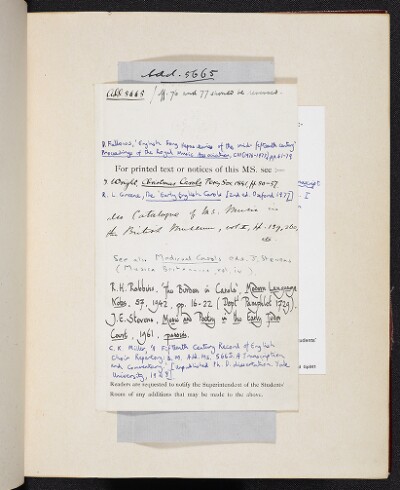 Add. 5665
Add 5665 / ff. 76 and 77 should be
D. Fallows, 'English Song repertories of the mid-fifteenth century'
Proceedings of the Royal Music Association, pp. 61-79
For printed text or notices of this MS. see
T. Wright, Christmas Carols Percy Soc. 1841,
R. L. Greene, The Early English Carols [2nd ed. Oxford 1977]
See Catalogue of MS. Music in
the British Museum, vol I, ff. 129, 260,
etc.
See also Medieval Carols ed. J. Stevens
(Musica Britannica, vol. iv).
R. H. Robbins, 'The Burden in Carols', Modern Language
Notes, 57, 1942, pp. 16-22 (Dept Pamphlet 1729).
J. E. Stevens, Music and Poetry in the Early Tudor
Court, 1961, passim.
C. K. Miller, 'A Fifteenth Century Record of English
Choir Repertory: B.M. Add. Ms. 5665; A Transcription
and Commentary' [unpublished Ph. D. dissertation Yale
University,
Readers are requested to notify the Superintendent of the Students'
Room of any additions that may be made to the above.